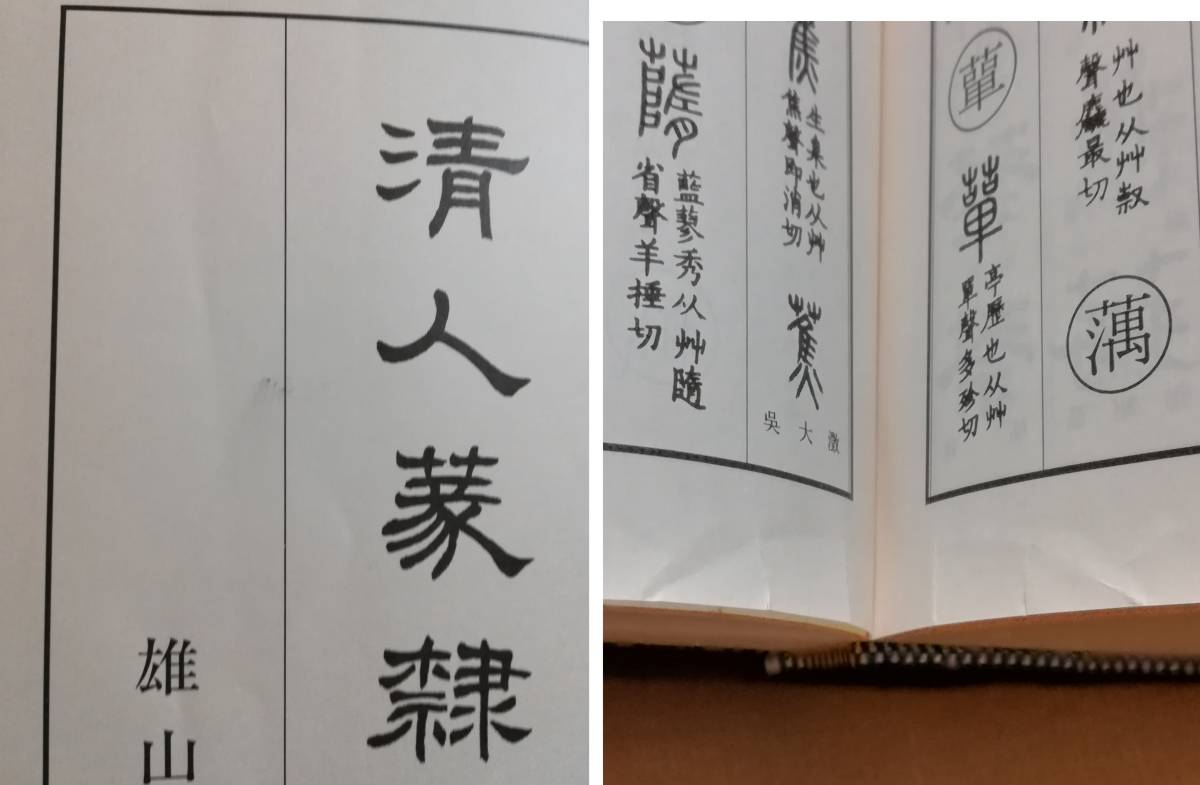 清人篆隷
雄山
艸也从艸叕
聲麤最切
藕
蕇
蕇
亭歷也从艸
單聲多殄切
生枲也从艸
焦聲即消切
蕉
吳大澂
藍蓼秀从艸隨
省聲羊捶切